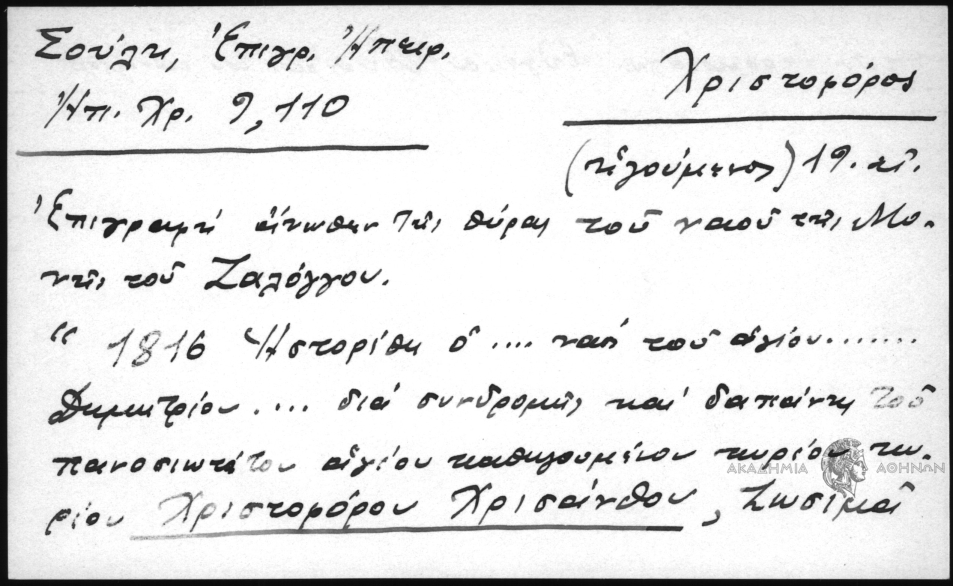 Σούλη, Ἐπιγρ. Ἠπειρ.
Ἠπ. Χρ. 9, 110
Χριστοφόρος
(ἡγούμενος) 19. αἰ.
Ἐπιγραφή ἄνωθεν τῆς θύρας τοῦ ναοῦ τῆς Μο-
νῆς τοῦ Ζαλόγγου.
“ 1816 Ηστορίθη ὁ .... ναός τοῦ ἁγίου.......
Δημητρίου .... διά συνδρομῆς καί δαπάνης τοῦ
πανοσιωτάτου ἁγίου καθηγουμένου κυρίου κυ-
ρίου Χριστοφόρου Χρισάνθου, Ζωσιμᾶ
ΑΚΑΔΗΜΙΑ ΑΘΗΝΩΝ